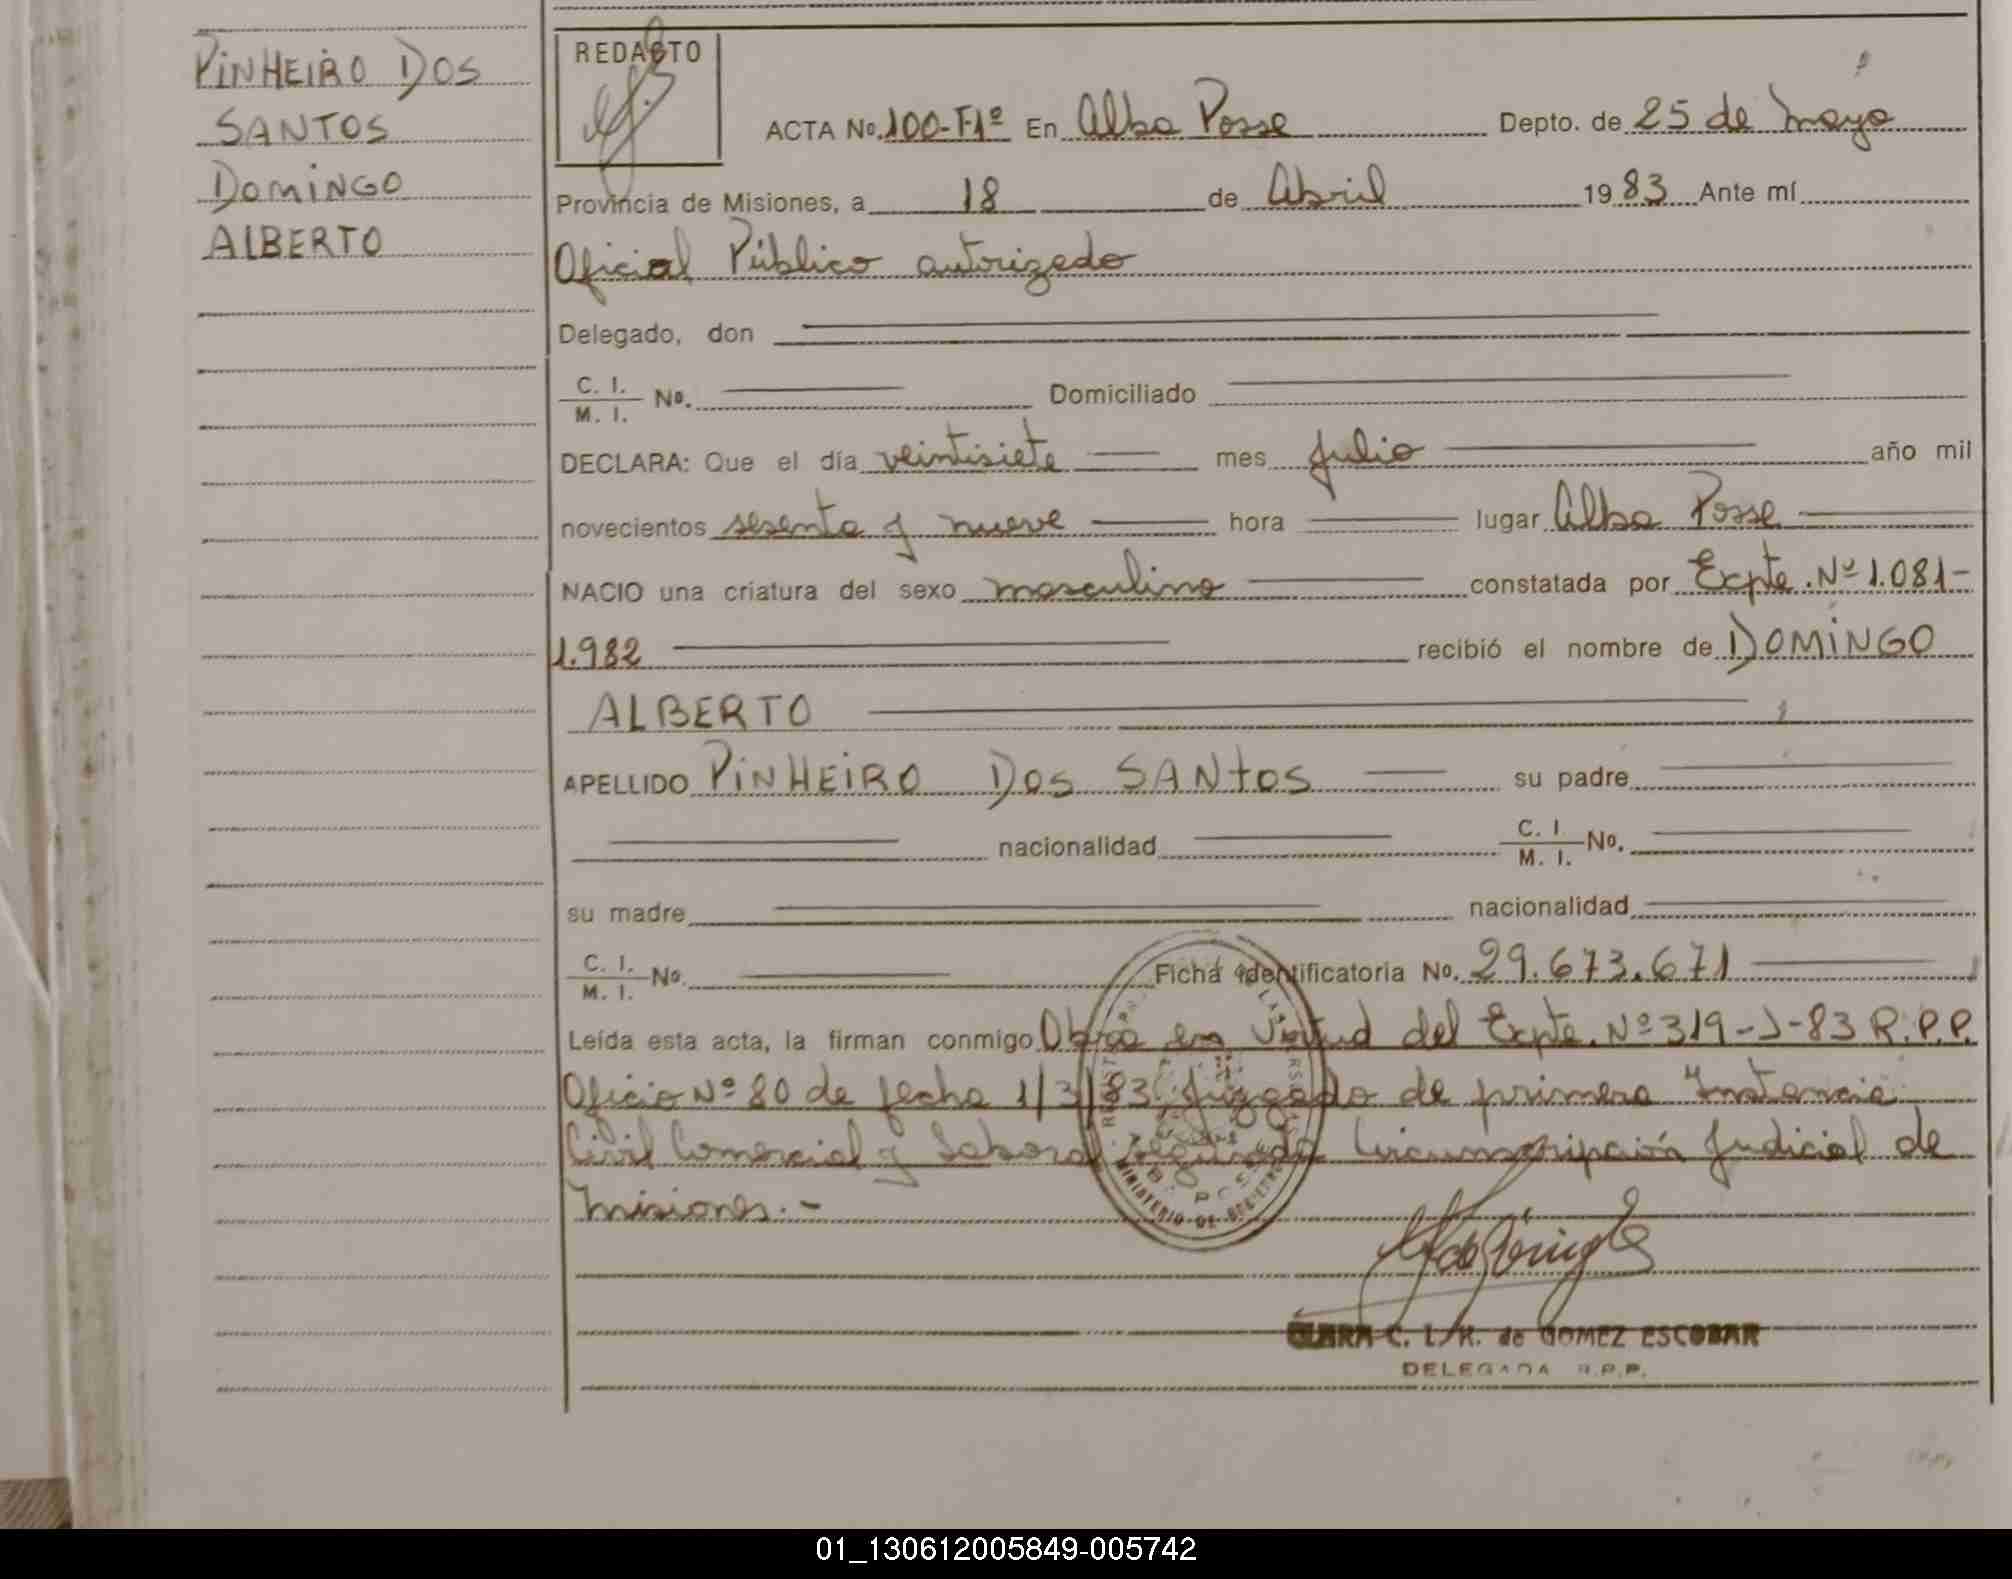 PINHEIRO DOS
SANTOS
DOMINGO
ALBERTO
REDACTO
ACTA No. 100-F1º En Alba Posse Depto. de 25 de Mayo
Provincia de Misiones, a 18 de Abril 1983 Ante mí
Oficial Público autorizado
Delegado, don
C. I.
M. I. No. Domiciliado
DECLARA: Que el día veintisiete mes Julio año mil
novecientos sesenta y nueve hora lugar Alba Posse
NACIO una criatura del sexo masculino constatada por Expte. Nº 1.081-
1.982 recibió el nombre de DOMINGO
ALBERTO
APELLIDO PINHEIRO DOS SANTOS su padre
nacionalidad C. I.
M. I. No.
su madre nacionalidad
C. I.
M. I. No. Ficha identificatoria No. 29.673.671
Leída esta acta, la firman conmigo Obra en Virtud del Expte. Nº 319-J-83 R.P.P.
Oficio Nº 80 de fecha 1/3/83 Juzgado de primera Instancia
Civil Comercial y Laboral segunda Circunscripción Judicial de
Misiones.-
MINISTERIO DE
CLARA C. L. K. de GOMEZ ESCOBAR
DELEGADA R.P.P.
01_130612005849-005742